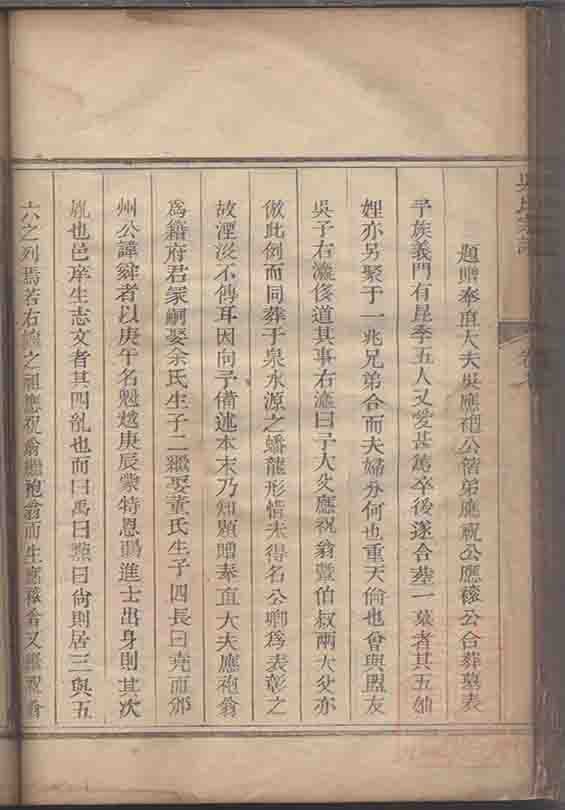 吳氏宗譜
卷
題贈奉直大夫吳應袍公偕弟應祝公應稼公合葬墓表
予族義門有昆季五人友愛甚篤卒後遂合葬一墓者其五妯
娌亦另聚于一兆兄弟合而夫婦分何也重天倫也曾與盟友
吳子右瀛偹道其事右瀛曰予大父應祝翁暨伯叔兩大父亦
倣此例而同葬于泉水源之蟠龍形惜未得名公卿為表彰之
故湮沒不傳耳因向予備述本末乃知題贈奉直大夫應袍翁
為籍府君冢嗣娶余氏生子二繼娶董氏生子四長曰堯而邠
州公諱舜者以庚午名魁越庚辰蒙特恩賜進士出身則其次
胤也邑庠生志文者其四胤也而曰禹曰燕曰尙則居三與五
六之列焉若右瀛之祖應祝翁繼袍翁而生應稼翁又繼祝翁